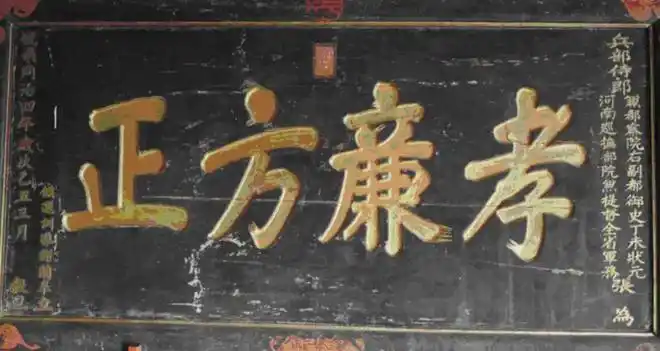 兵部侍郎
兼都察院右副都御史丁未狀元張
河南巡撫部院兼提督全省軍務
為
孝廉方正
同治四年歲次乙丑三月